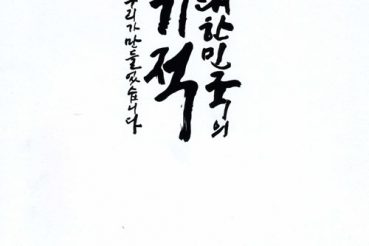 대한민국의
기적
우리가 만들었습니다